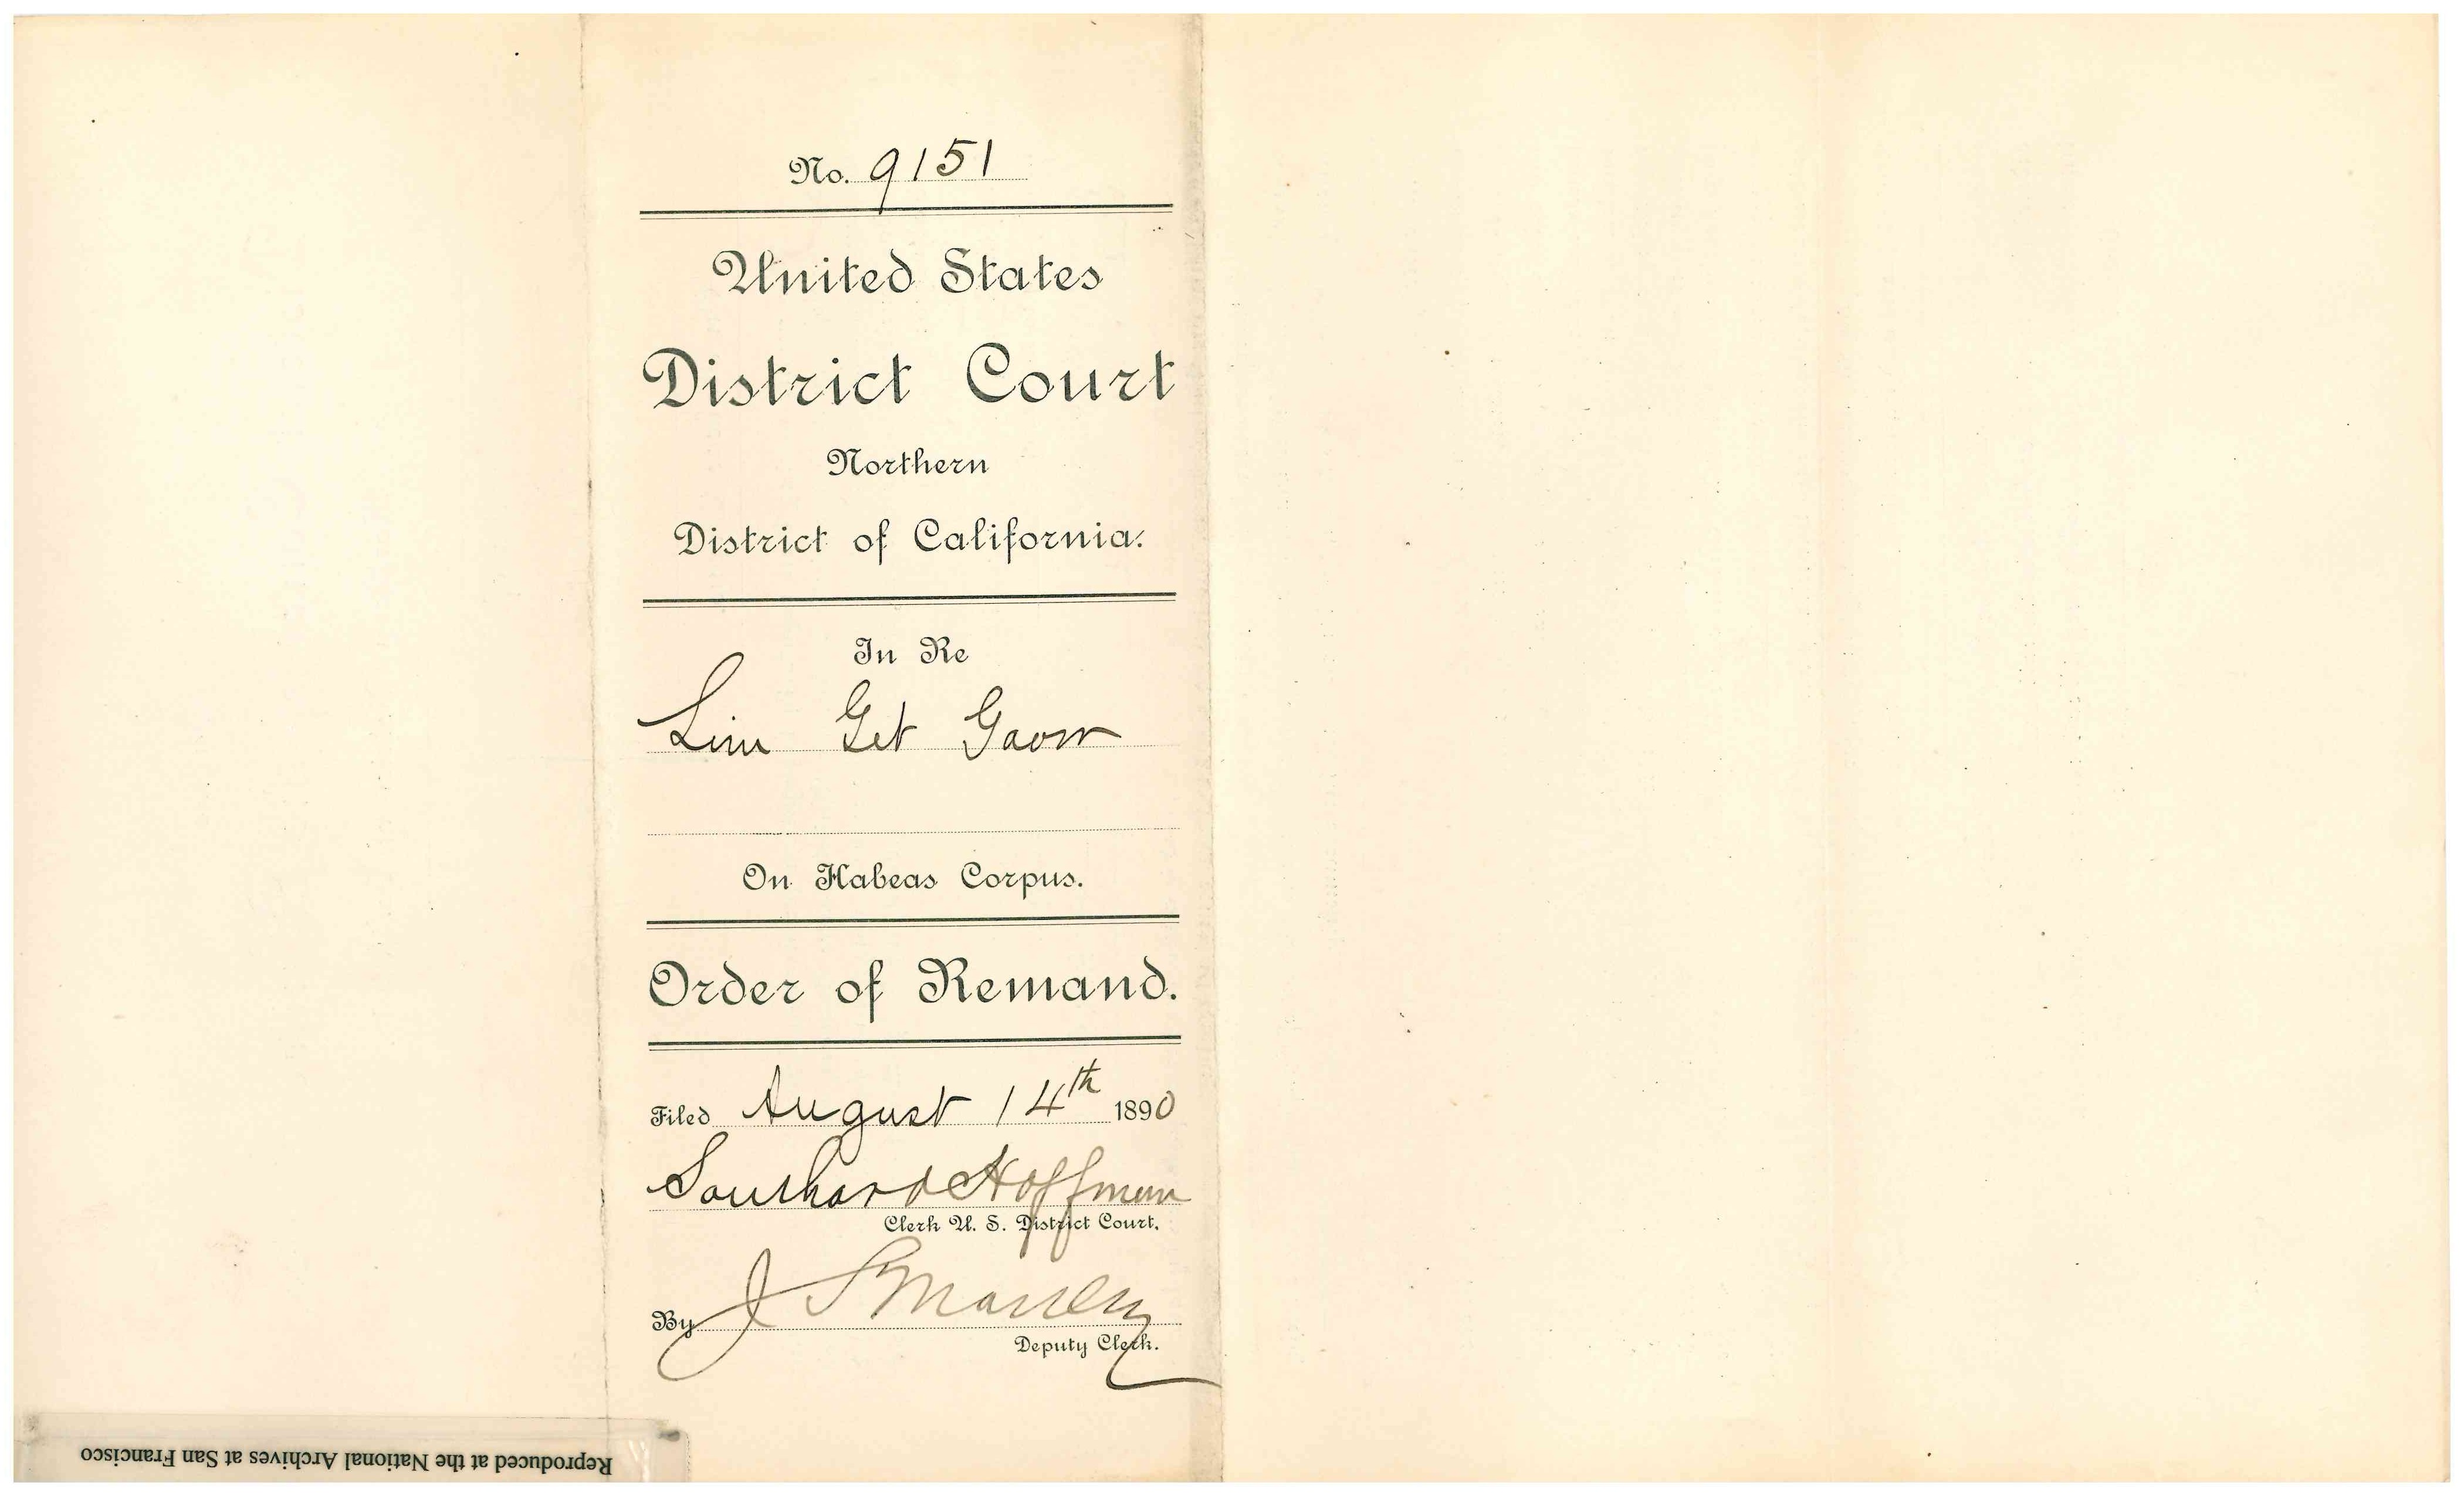 No. 9151
United States
District Court
Northern
District of California.
In Re
Lim Get
On Habeas Corpus.
Order of Remand.
Filed August 14th 1890
Southard Hoffman
Clerk U. S. District Court.
By J S Manley
Deputy Clerk.
Reproduced at the National Archives at San Francisco